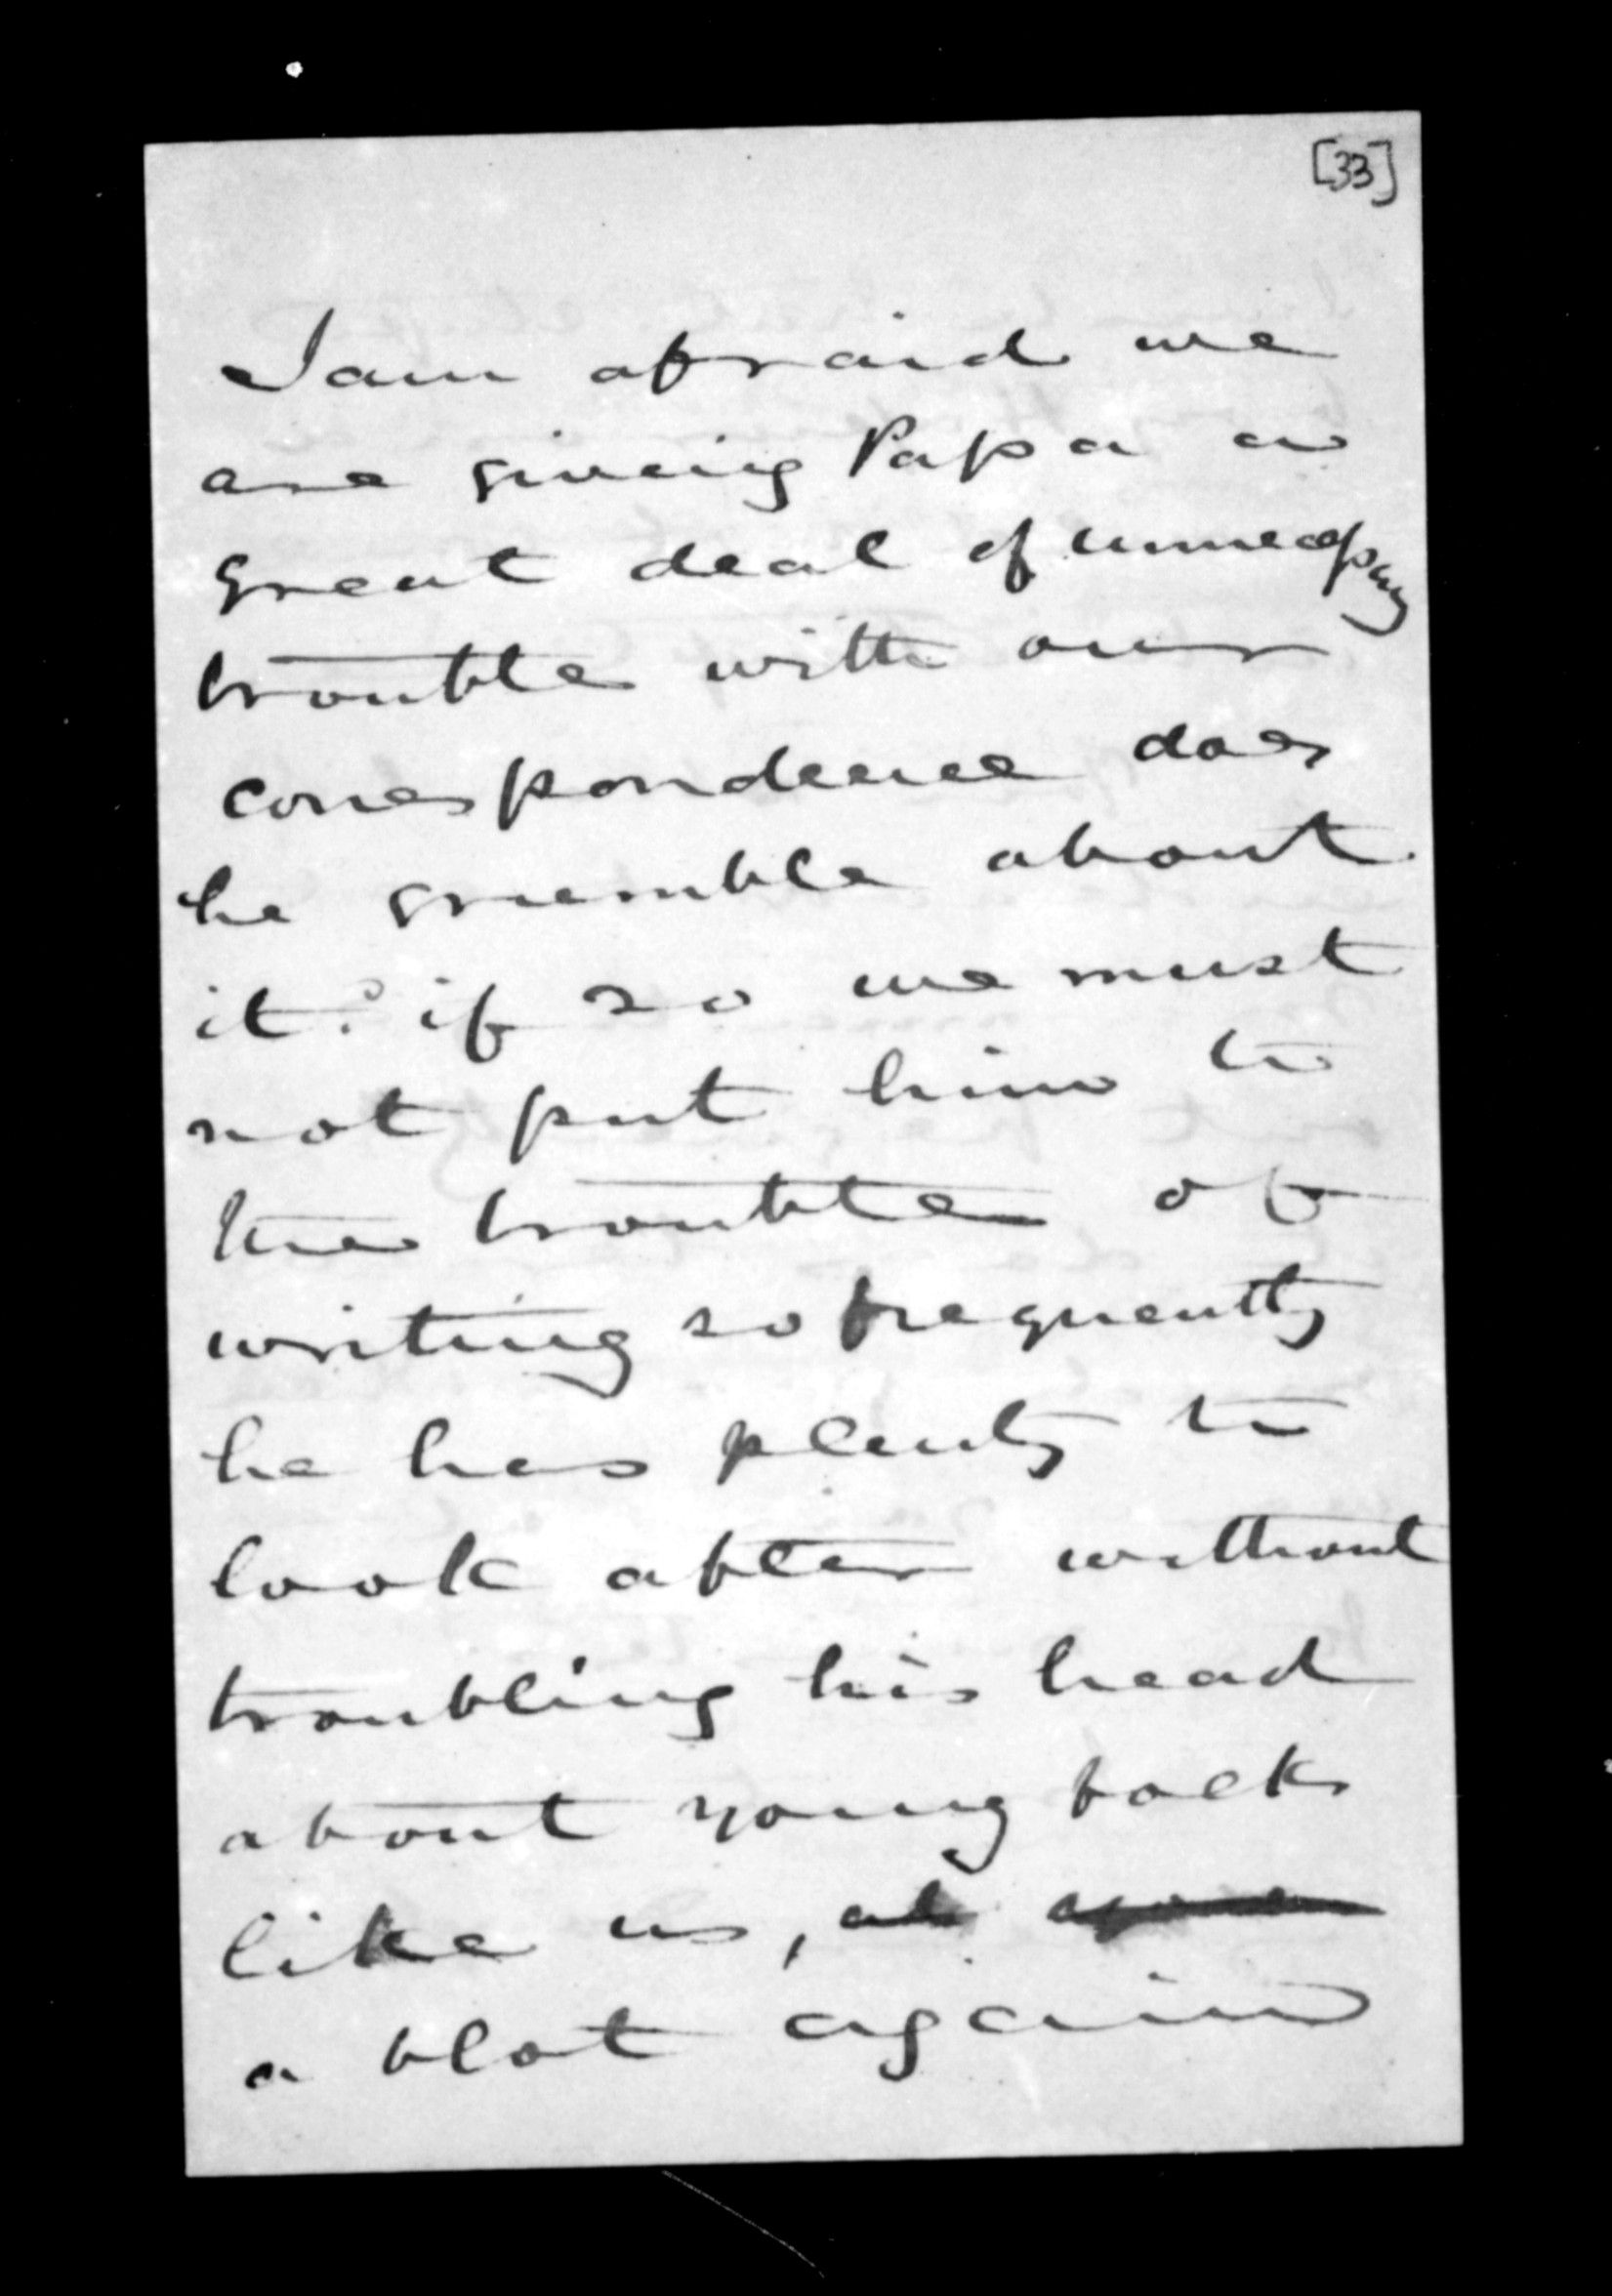 [33]
I am afraid we
are giving Papa a
great deal of unnecessary
trouble with our
correspondence does
he grumble about
it? if so we must
not put him to
the trouble of
writing so frequently
he has plenty to
look after without
troubling his head
about young folks
like us,
a blot again